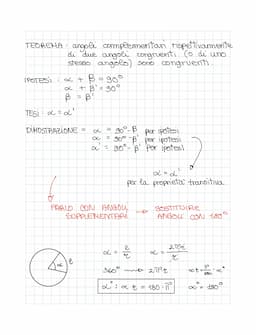 TEOREMA: angoli complementari rispettivamente
di due angoli congruenti (o di uno
stesso angolo) sono congruenti.
IPOTESI: α + β = 90°
α + β' = 90°
β = β'
TESI: α = α'
DIMOSTRAZIONE = α = 90° - β per ipotesi
α = 90° - β' per ipotesi
α' = 90° - β' per ipotesi
α = α'
per la proprietà transitiva
CON ANGOLI → SOSTITUIRE
SUPPLEMENTARI ANGOLI CON 180°
360° → 2πr
α° : α r = 180 : π